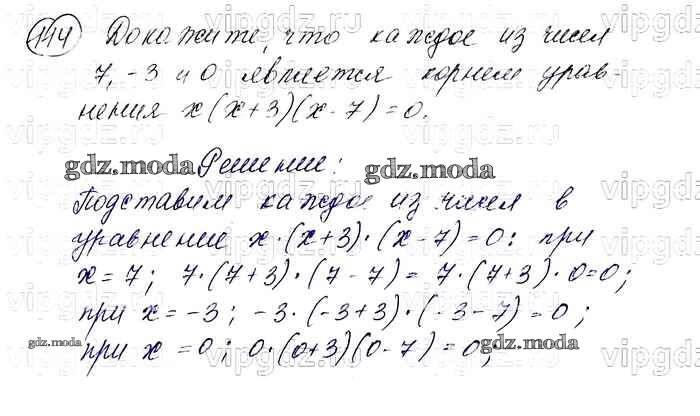 114 Докажите, что каждое из чисел
7, -3 и 0 является корнем урав-
нения x(x+3)(x-7)=0.
Решение:
Подставим каждое из чисел в
уравнение x·(x+3)·(x-7)=0: при
x=7; 7·(7+3)·(7-7)= 7·(7+3)·0=0;
при x=-3; -3·(-3+3)·(-3-7)=0;
при x=0; 0·(0+3)(0-7)=0;
gdz.moda
gdz.moda
gdz.moda
gdz.moda
vipgdz.ru